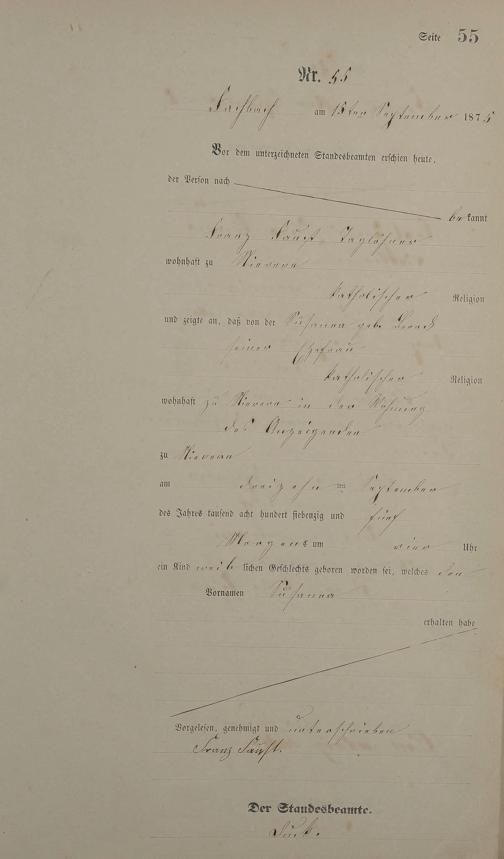 Seite 55
Nr. 55
Fachbach am 15ten September 1875
Vor dem unterzeichneten Standesbeamten erschien heute,
der Person nach
bekannt
Franz Faust, Taglöhner
wohnhaft zu Nievern
katholischer Religion
und zeigte an, daß von der Susanna geb.
seiner Ehefrau
katholischer Religion
wohnhaft zu Nievern in der Wohnung
des Anzeigenden
zu Nievern
am dreizehnten September
des Jahres tausend acht hundert siebenzig und fünf
Morgens um vier Uhr
ein Kind weiblichen Geschlechts geboren worden sei, welches den
Vornamen Susanna
erhalten habe
Vorgelesen, genehmigt und unterschrieben
Franz Faust.
Der Standesbeamte.